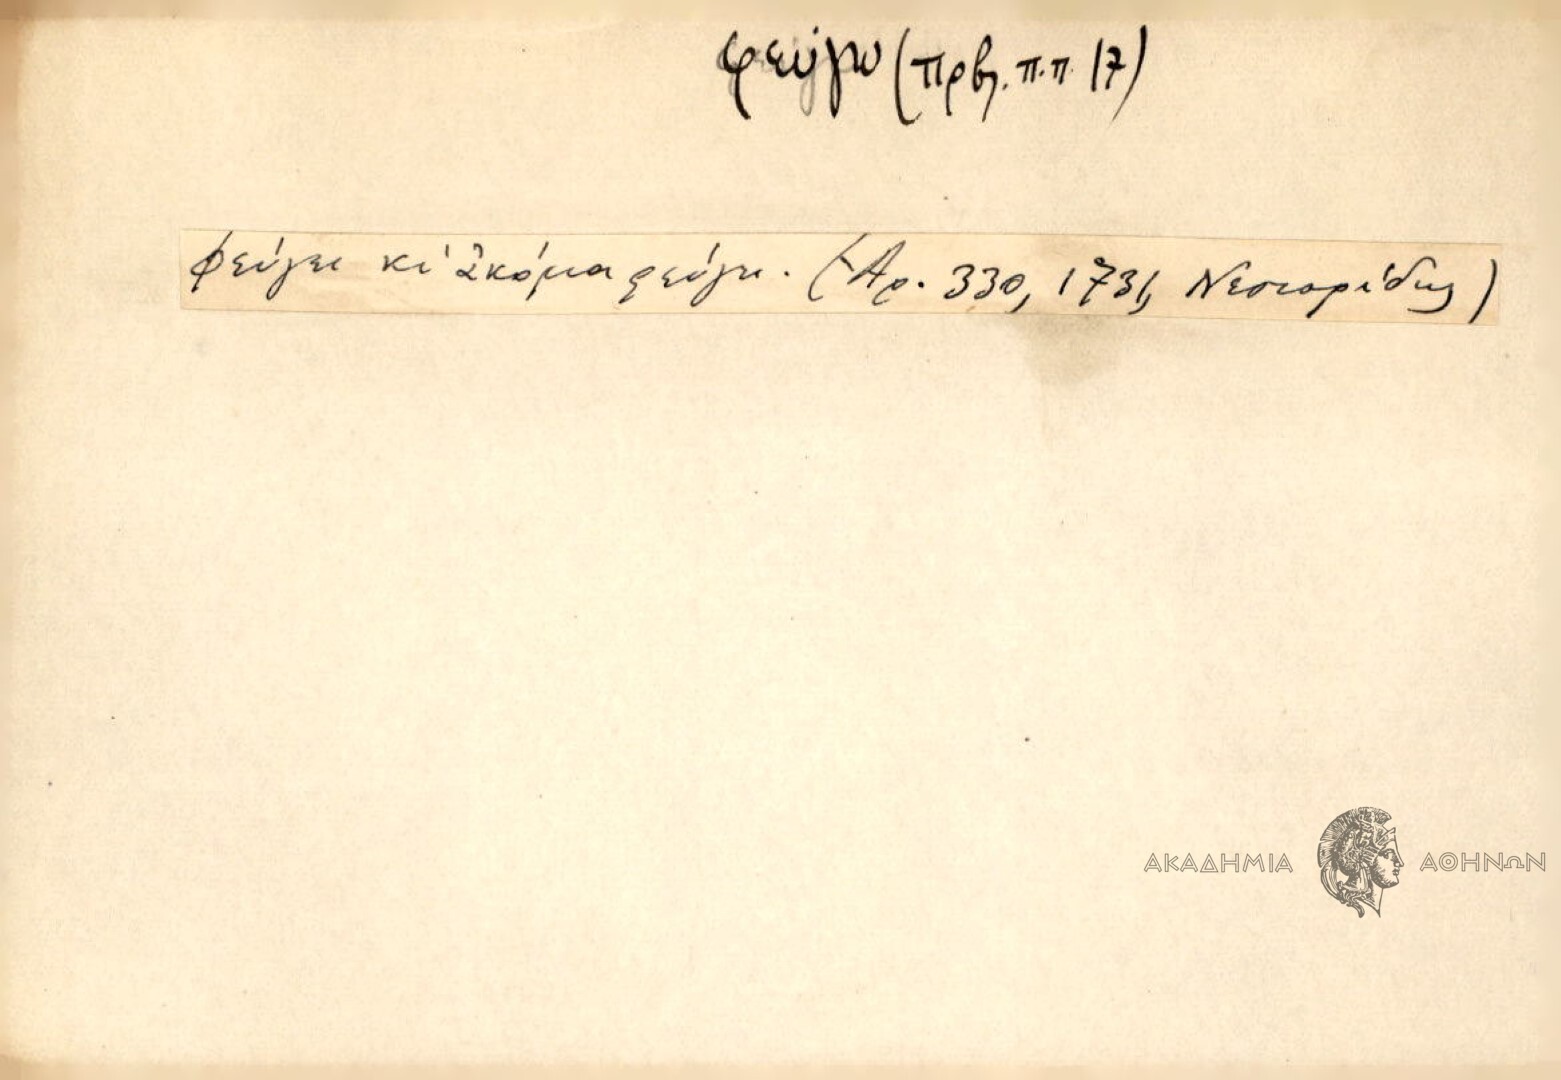 φεύγω (πρβλ. π.π. 17)
Φεύγει κι' ἀκόμα φεύγει. (Ἀρ. 330, 1731, Νεστορίδης)
ΑΚΑΔΗΜΙΑ ΑΘΗΝΩΝ